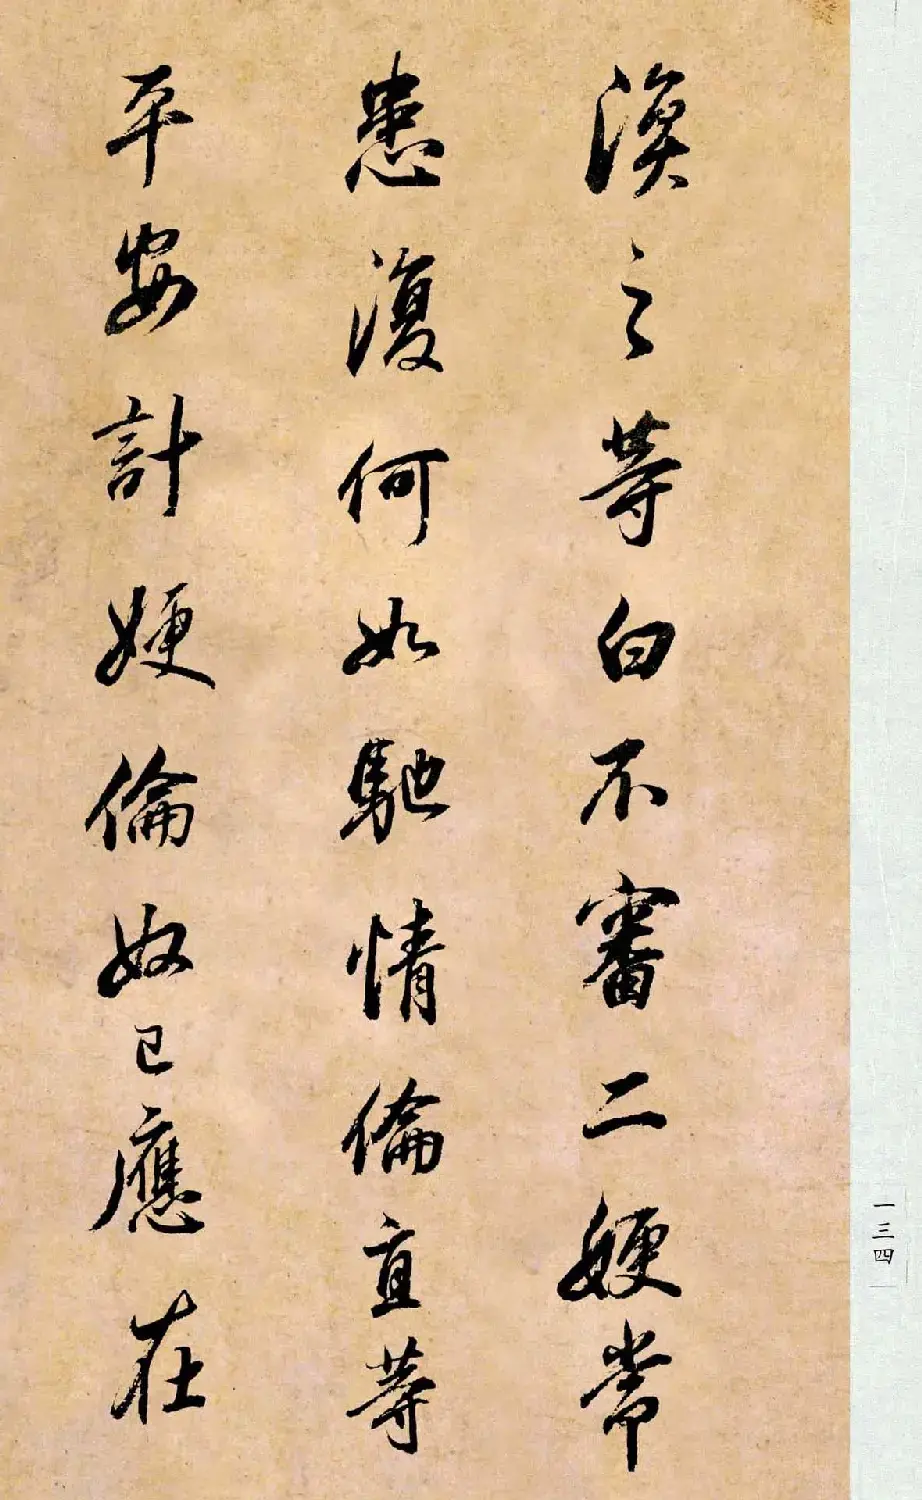 渙之等白不審二嫂常
患復何如馳情倫直等
平安計嫂倫奴已應在
一三四